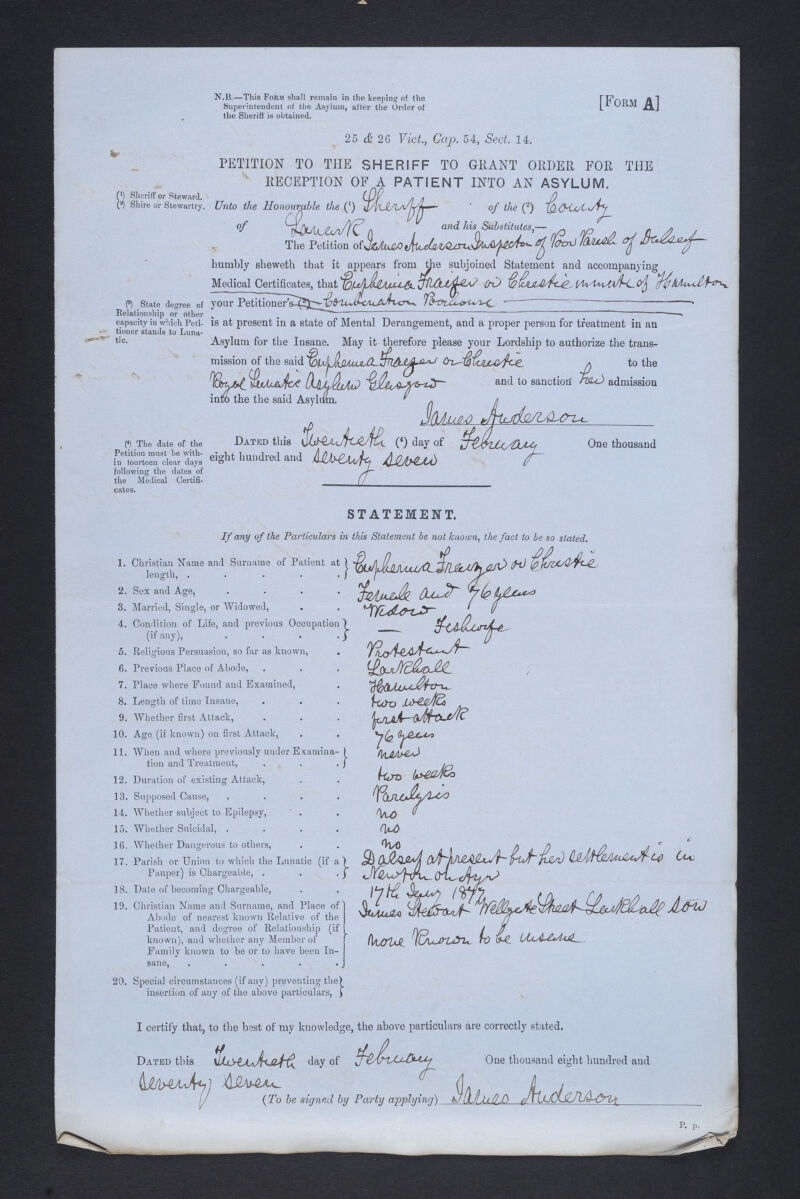 N.B.—This Form shall remain in the keeping of the
Superintendent of the Asylum, after the Order of
the Sheriff is obtained.
[Form A]
25 & 26 Vict., Cap. 54, Sect. 14.
PETITION TO THE SHERIFF TO GRANT ORDER FOR THE
RECEPTION OF A PATIENT INTO AN ASYLUM.
(¹) Sheriff or Steward.
(²) Shire or Stewartry.
Unto the Honourable the (¹) Sheriff of the (²) County
of Lanark and his Substitutes,—
The Petition of James Anderson Inspector of Poor Parish of Dalserf
humbly sheweth that it appears from the subjoined Statement and accompanying
Medical Certificates, that Euphemia Frazer or Chrestie inmate of Hamilton
(³) State degree of
Relationship or other
capacity in which Peti-
tioner stands to Luna-
tic.
your Petitioner's (³) Combination Poorhouse
is at present in a state of Mental Derangement, and a proper person for treatment in an
Asylum for the Insane. May it therefore please your Lordship to authorize the trans-
mission of the said Euphemia Frazer or Chrestie to the
Royal Lunatic Asylum Glasgow and to sanction her admission
into the the said Asylum.
James Anderson
(⁴) The date of the
Petition must be with-
in fourteen clear days
following the dates of
the Medical Certifi-
cates.
Dated this Twentieth (⁴) day of February One thousand
eight hundred and seventy seven
STATEMENT.
If any of the Particulars in this Statement be not known, the fact to be so stated.
1. Christian Name and Surname of Patient at length, . Euphemia Frazer or Christie
2. Sex and Age, Female and 76 years
3. Married, Single, or Widowed, Widow
4. Condition of Life, and previous Occupation (if any), — Fishwife
5. Religious Persuasion, so far as known, Protestant
6. Previous Place of Abode, Larkhall
7. Place where Found and Examined, Hamilton
8. Length of time Insane, two weeks
9. Whether first Attack, first attack
10. Age (if known) on first Attack, 76 years
11. When and where previously under Examina-
tion and Treatment, never
12. Duration of existing Attack, two weeks
13. Supposed Cause, Paralysis
14. Whether subject to Epilepsy, no
15. Whether Suicidal, no
16. Whether Dangerous to others, no
17. Parish or Union to which the Lunatic (if a Dalserf at present but her settlement is in
Pauper) is Chargeable, Newton on Ayr
18. Date of becoming Chargeable, 17th Jany 1877
19. Christian Name and Surname, and Place of James Stewart Wellgate Street Larkhall Son
Abode of nearest known Relative of the
Patient, and degree of Relationship (if
known), and whether any Member of none known to be insane
Family known to be or to have been In-
sane,
20. Special circumstances (if any) preventing the
insertion of any of the above particulars,
I certify that, to the best of my knowledge, the above particulars are correctly stated.
Dated this Twentieth day of February One thousand eight hundred and
seventy seven
(To be signed by Party applying) James Anderson
P. p.